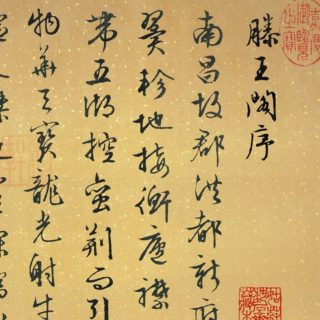 嘉慶
御覽
之寶
滕王閣序
南昌故郡洪都新府
翼軫地接衡廬襟
帶五湖控蠻荊而引
物華天寶龍光射牛